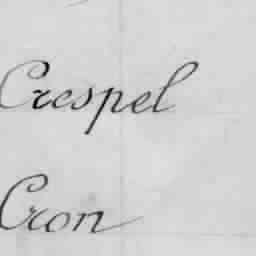 Crespel
Cron